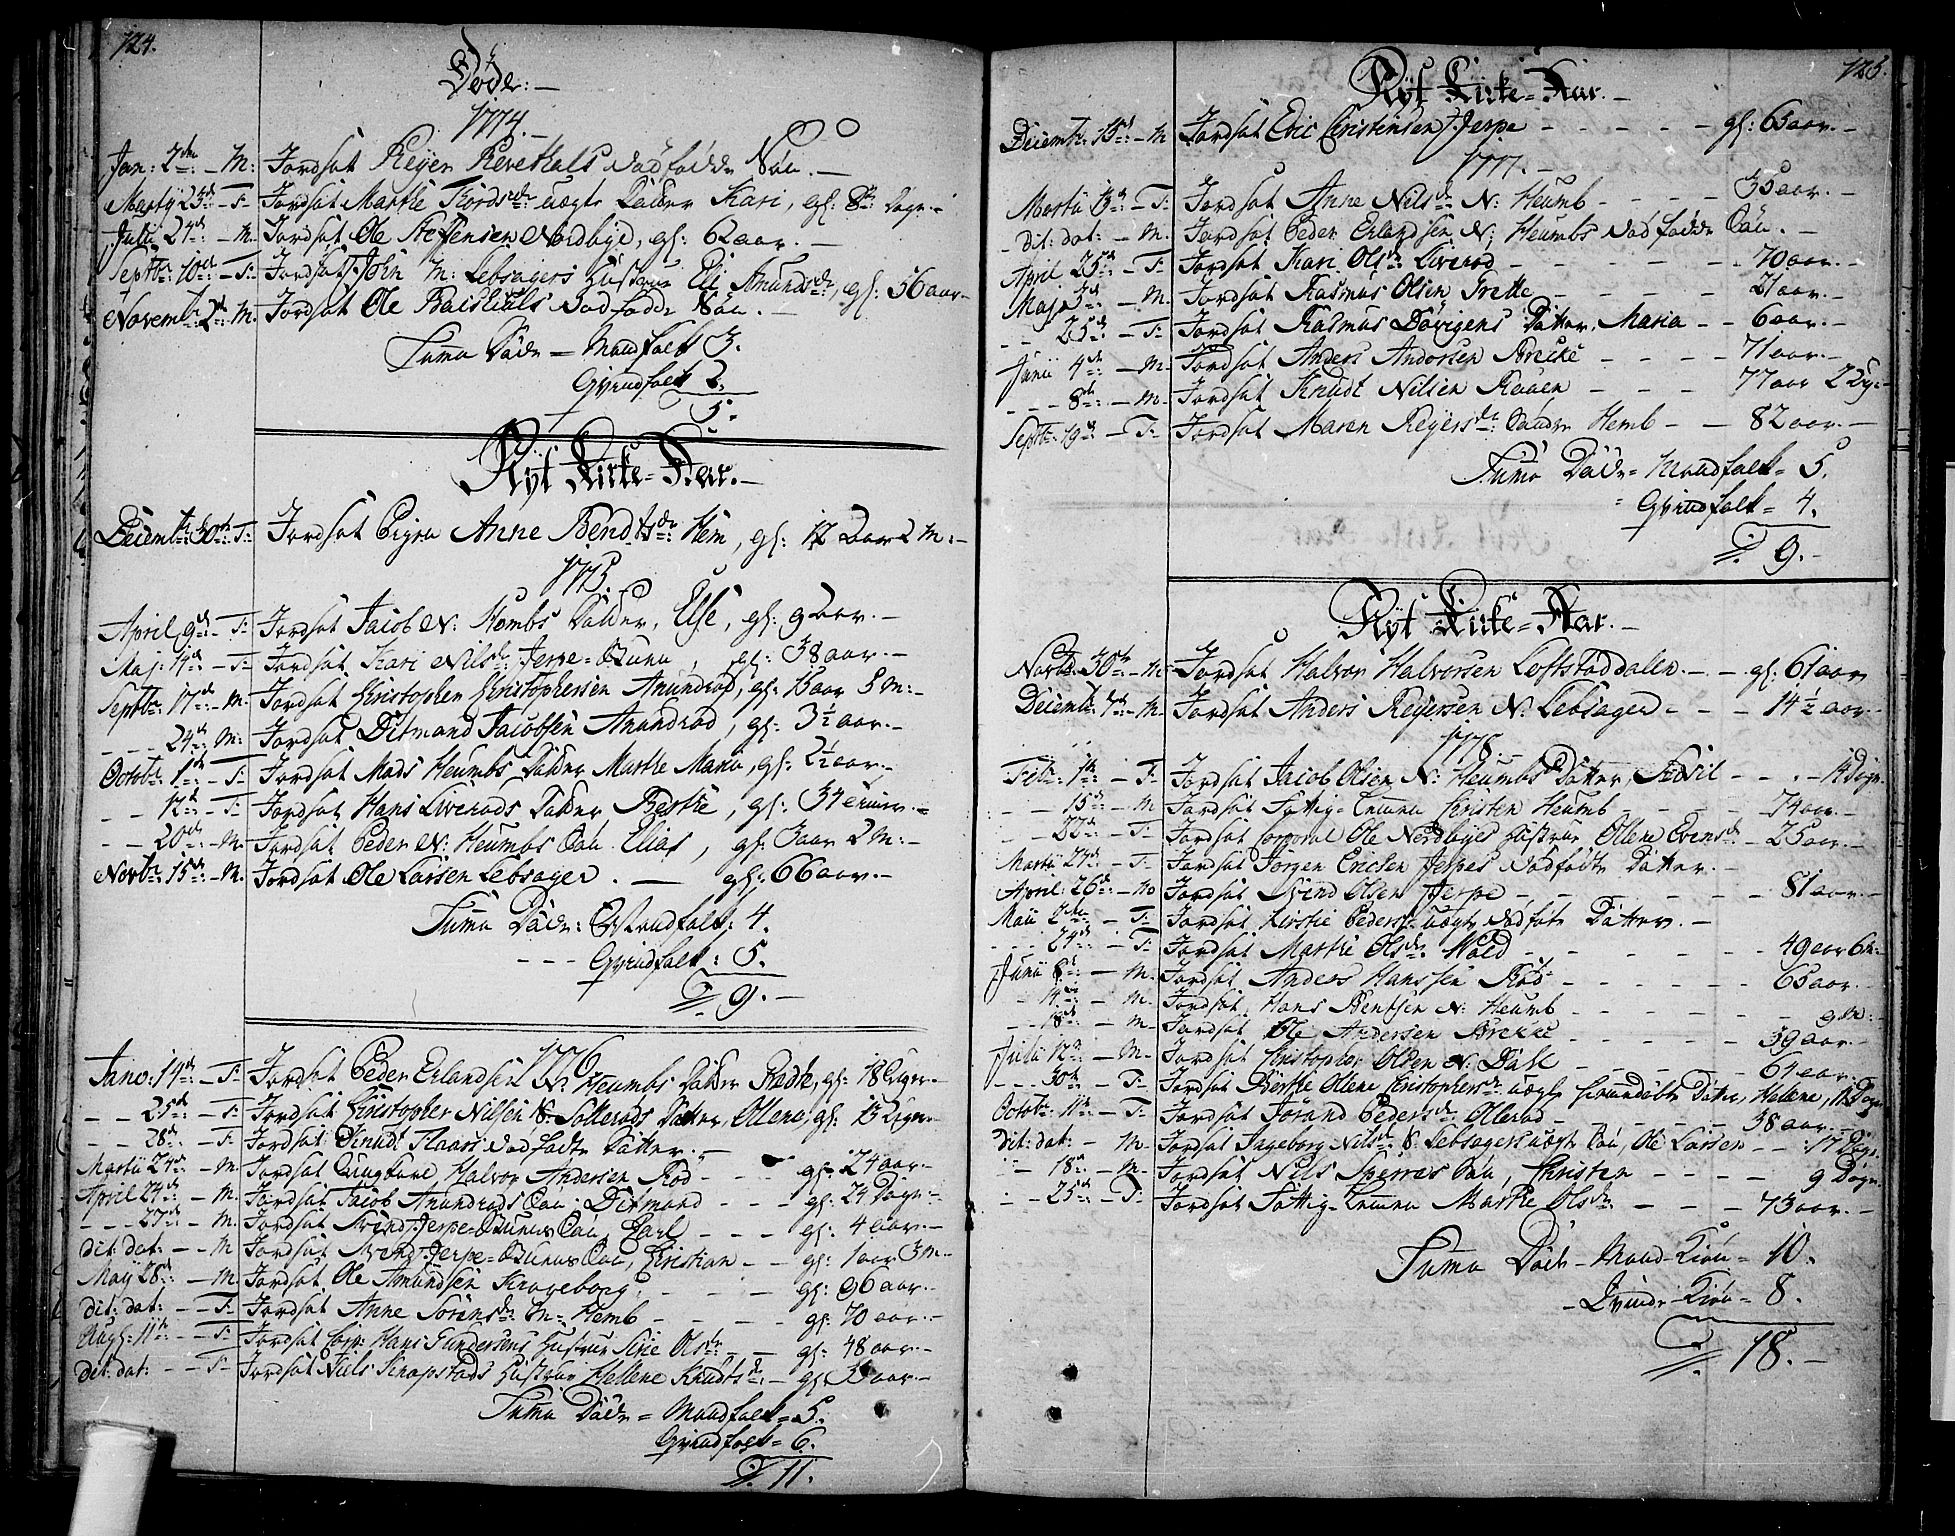 124.
Døde:
1774.
Jan: 2den — M: Jordsat Reyer Revehals dødfødde Sön.
Marty 23d — F: Jordsat Marthe Tordsdr: uægte Datter Kari, gl: 8te Dage.
Julii 24d: — M. Jordsat Ole Steffensen Nordbye, gl: 62 aar. —
Septbr: 10d — F: Jordsat John M: Lebsagers Hustrue Eli Amundsdr:, gl: 56 aar —
Novembr: 2d: M. Jordsat Ole dødfødde Sön. —
Suma Døde = Mandfolk 3.
Qvindfolk 2.
5.
Nyt Kirke-Aar. —
Decembr: 30te F: Jordsat Pigen Anne Bendtsdr: Hem, gl: 17 Aar 2 M: —
1775.
April 9d: — F: Jordsat Jacob N: Hembs Datter, Else, gl: 9 Aar. —
Maj: 14d — F: Jordsat Kari Nilsdr: Jerpe- , gl: 38 aar. —
Septbr: 17d — M. Jordsat Christopher Christophersen Amundrød, gl: 15 aar 3 M: —
- - - 24d: M: Jordsat Ditmand Jacobsen Amundrød, gl: 3½ aar. —
Octobr: 1ste — F: Jordsat Mads Heumbs Datter Marthe Maria, gl: 2½ aar. —
- - 12te — F: Jordsat Hans Liverøds Datter, Berthe, gl: 34 —
- - 20d: — M. Jordsat Peder N: Heumbs Sön Elias, gl: 3 aar 2 M: —
Novbr: 15de — M. Jordsat Ole Larsen Lebsager. — gl: 66 aar. —
Suma Döde: Mandfolk: 4.
- - - Qvindfolk: 5.
9. —
1776.
Jano: 14de — F: Jordsat Peder Erlandsen N: Heumbs Datter gl: 18 Uger. —
- - 25d — F: Jordsat Christopher Nilsen S: Datter, Ollene, gl: 13 Uger. —
- - 28d: — F: Jordsat Knudt dødfødte Datter. —
Martii 24de — M. Jordsat Halvor Andersen Röd - - - gl: 24 aar. —
April 24de: — M. Jordsat Jacob Amundrøds Sön Ditmand - - - gl: 24 Dage. —
- - - 27de: — M. Jordsat Svend Jerpe- Sön, Carl - - - gl: 4 aar. —
dit: dat: — M Jordsat Svend Jerpe- Sön, Christian - - gl: 1 aar 3 M —
May 28d: — M Jordsat Ole Amundsen - - - gl: 96 aar. —
dit: dat: — F: Jordsat Anne Sörensdr: M: Hemb - - - gl: 70 aar. —
Aug: 11te — F: Jordsat Corp: Hans Gundersens Hustrue Sirie Olsdr: — gl: 48 aar. —
dit: dat: — F: Jordsat Niels Knapstads Hustrue Hellene Knudtsdr: — gl: aar. —
Suma Döde = Mandfolk = 5.
Qvindfolk = 6.
11.
125.
Nyt Kirke-Aar. —
Decembr: 15d — M Jordsat Eric Christensen Jerpe - - - - gl: 65 aar. —
1777. —
Martii 13de — F: Jordsat Anne Nilsdr: N: Heumb - - - 35 aar. —
dit: dat: — M. Jordsat Peder Erlandsen N: Heumbs dødfødde Sön. —
April 25de — F: Jordsat Kari Olsdr: Liverød - - - 70 aar. —
Maj 3d — M. Jordsat Rasmus Olsen - - - 21 aar. —
- - 25d: — F: Jordsat Rasmus Datter, Maria - - 6 aar. —
Junii 4de — M. Jordsat Anders Andersen Brecke - - - 71 aar. —
- - - 8de: — M. Jordsat Knudt Nilsen - - - 77 aar 2 Dg: —
Septbr: 19de — F: Jordsat Maren Reyersdr: Söndre Hemb - - 82 aar. —
Suma Döde = Mandfolk = 5.
Qvindfolk = 4.
9. —
Nyt Kirke-Aar. —
Novbr: 30te — M. Jordsat Halvor Halvorsen Loftstaddalen. — gl: 61 aar
Decembr: 7de: — M. Jordsat Anders Reyersen N: Lebsager - - - 14½ aar. —
1778. —
Febr: 1ste — F. Jordsat Jacob Olsen N: Heumbs Datter, - - - 14 Dage.
- - 15de: — M Jordsat Fattig-Lemmen Christen Heumb - - - 74 aar. —
- - 22de: — F. Jordsat Corporal Ole Nordbyes Hustrue Ollene Evensdr: 25 aar. —
Martii 24de: — F: Jordsat Jörgen Ericsen Jerpes dødfødte Datter. —
April 26de: — M Jordsat Svend Olsen Jerpe - - - 81 aar. —
Maii 2den — F: Jordsat Kirstie Pedersdr: uægte dødföte Datter. —
- - - 24de: — F: Jordsat Marthe Olsdr: - - - 49 aar 6 M:
Junii 8de — M: Jordsat Anders Hanssen Röd - - - 65 aar. —
- - 14de — M. Jordsat Hans Bentsen N: Heumb - - - 9 M: —
- - 18de — M. Jordsat Ole Andersen Brekke - - - 39 aar. —
Julii 12te — M. Jordsat Christopher Olsen N: Dahl - - - 61 aar. —
- - 30te — F: Jordsat Berthe Ollene Christophersdr: uægte Datter, Helene, 11 Dage
Octobr: 11te: — F: Jordsat Jörand Pedersdr: Ollerød - - - 38 aar. —
dit: dat: — M. Jordsat Ingeborg Nilsdr: S: Lebsagers uægte Sön, Ole Larsen - - 17 Dage.
- - 18de — M. Jordsat Nils Sperres Sön, Christen - - - 9 Dage
- - 25de — F: Jordsat Fattig-Lemmen Marthe Olsdr: - - - 73 aar. —
Suma Döde - Mand-Kiön = 10.
- Qvinde-Kiön = 8.
18. —